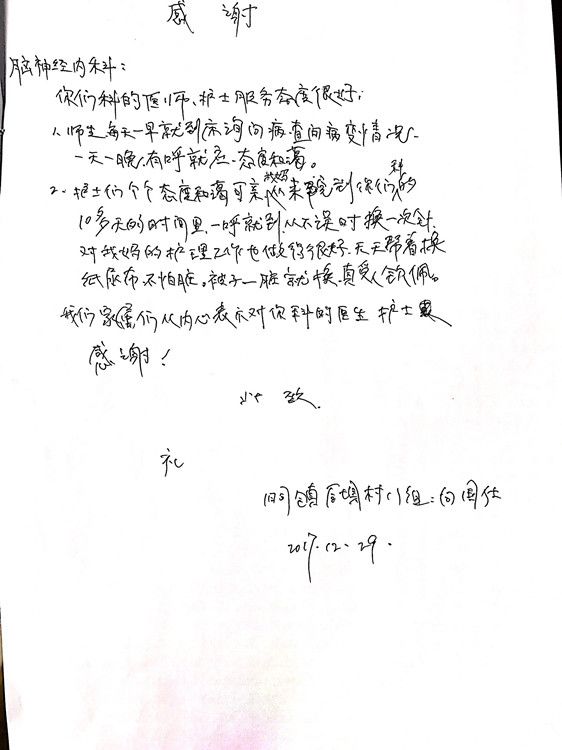 感谢
脑神经内科:
你们科的医师、护士服务态度很好;
1、师生每天一早就到床询问病查问病变情况、
一天一晚、有呼就应、态度和蔼。
2、护士们个个态度和蔼可亲、我妈从来到你们科的
10多天的时间里、一呼就到、从不误时换一次针、
对我妈的护理工作也做得很好、天天帮着换
纸尿布、不怕脏。被子一脏就换、真受人钦佩。
我们家属们从内心表示对你科的医生 护士
感谢!
此致
礼
镇 村 组:向国仕
2017.12.29.